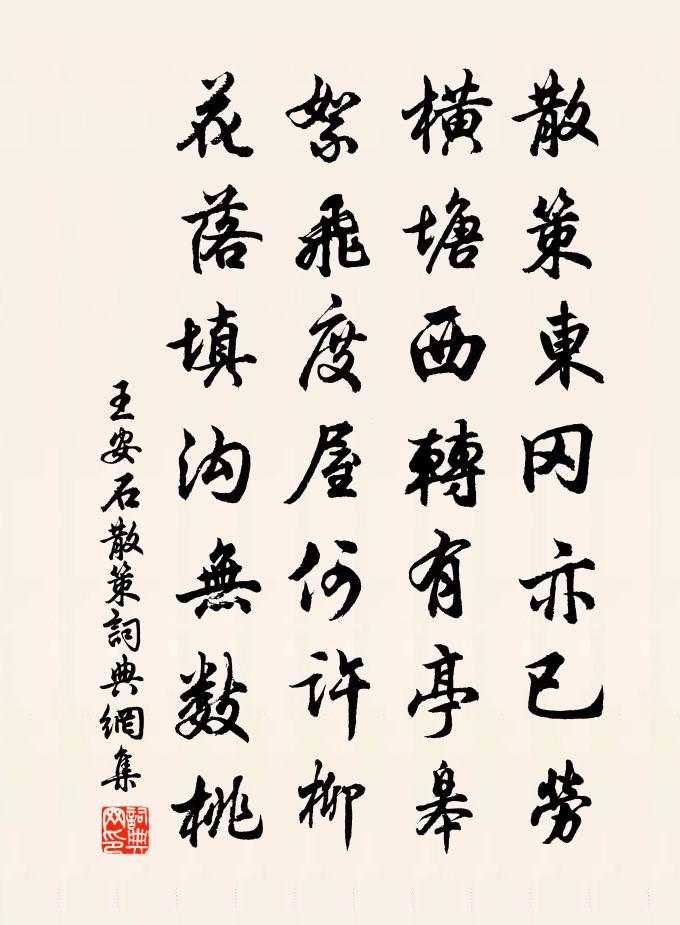 散策東冈亦已勞
橫塘西轉有亭皋
絮飛度屋何許柳
花落填溝無數桃
王安石散策詞典網集
詞典网印